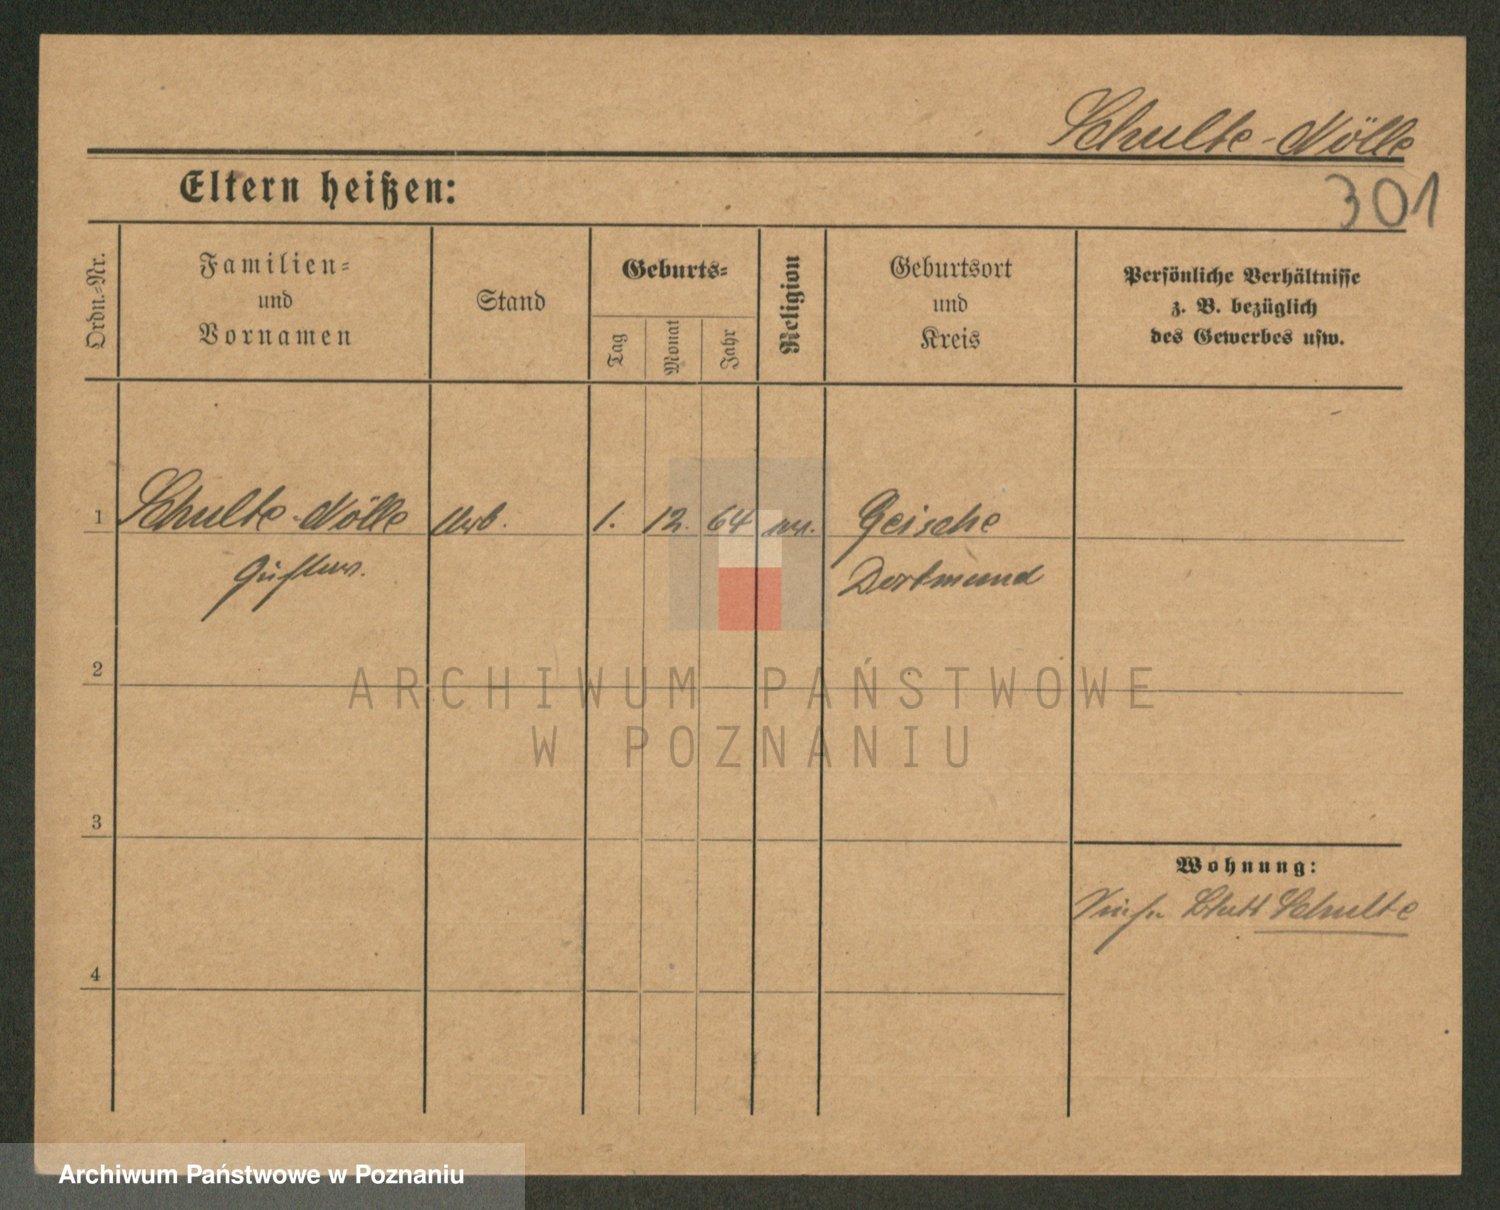 Schulte-Nölle
301
Eltern heißen:
Ordn.-Nr.
Familien-
und
Vornamen
Stand
Geburts-
Tag
Monat
Jahr
Religion
Geburtsort
und
Kreis
Persönliche Verhältnisse
z. B. bezüglich
des Gewerbes usw.
1 Schulte-Nölle Arb. 1. 12. 64 Geische
Gustav. Dortmund
2
3
4
Wohnung:
Siehe Blatt Schulte
ARCHIWUM PAŃSTWOWE
W POZNANIU
Archiwum Państwowe w Poznaniu